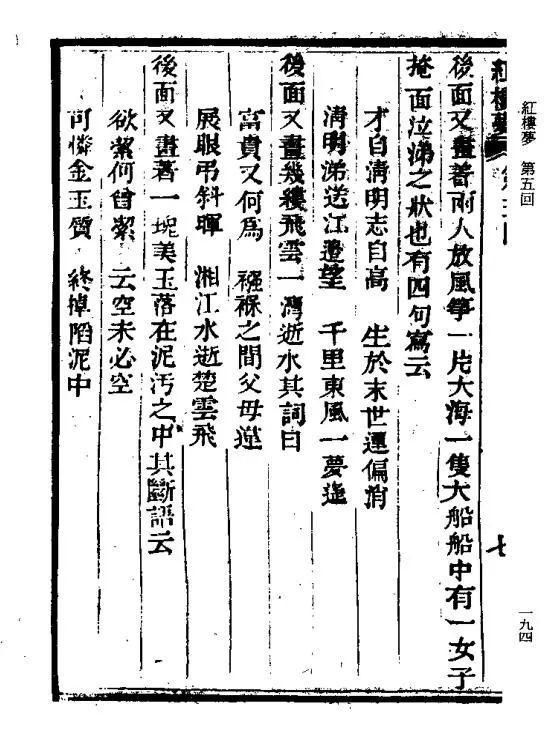 紅樓夢 第五回
一九四
紅樓夢 第五回
七
後面又畫着兩人放風箏一片大海一隻大船船中有一女子
掩面泣涕之狀也有四句寫云
才自清明志自高 生於末世運偏消
清明涕送江邊望 千里東風一夢遙
後面又畫幾縷飛雲一灣逝水其詞曰
富貴又何為 襁褓之間父母違
展眼弔斜暉 湘江水逝楚雲飛
後面又畫著一塊美玉落在泥汚之中其斷語云
欲潔何曾潔 云空未必空
可憐金玉質 終掉陷泥中